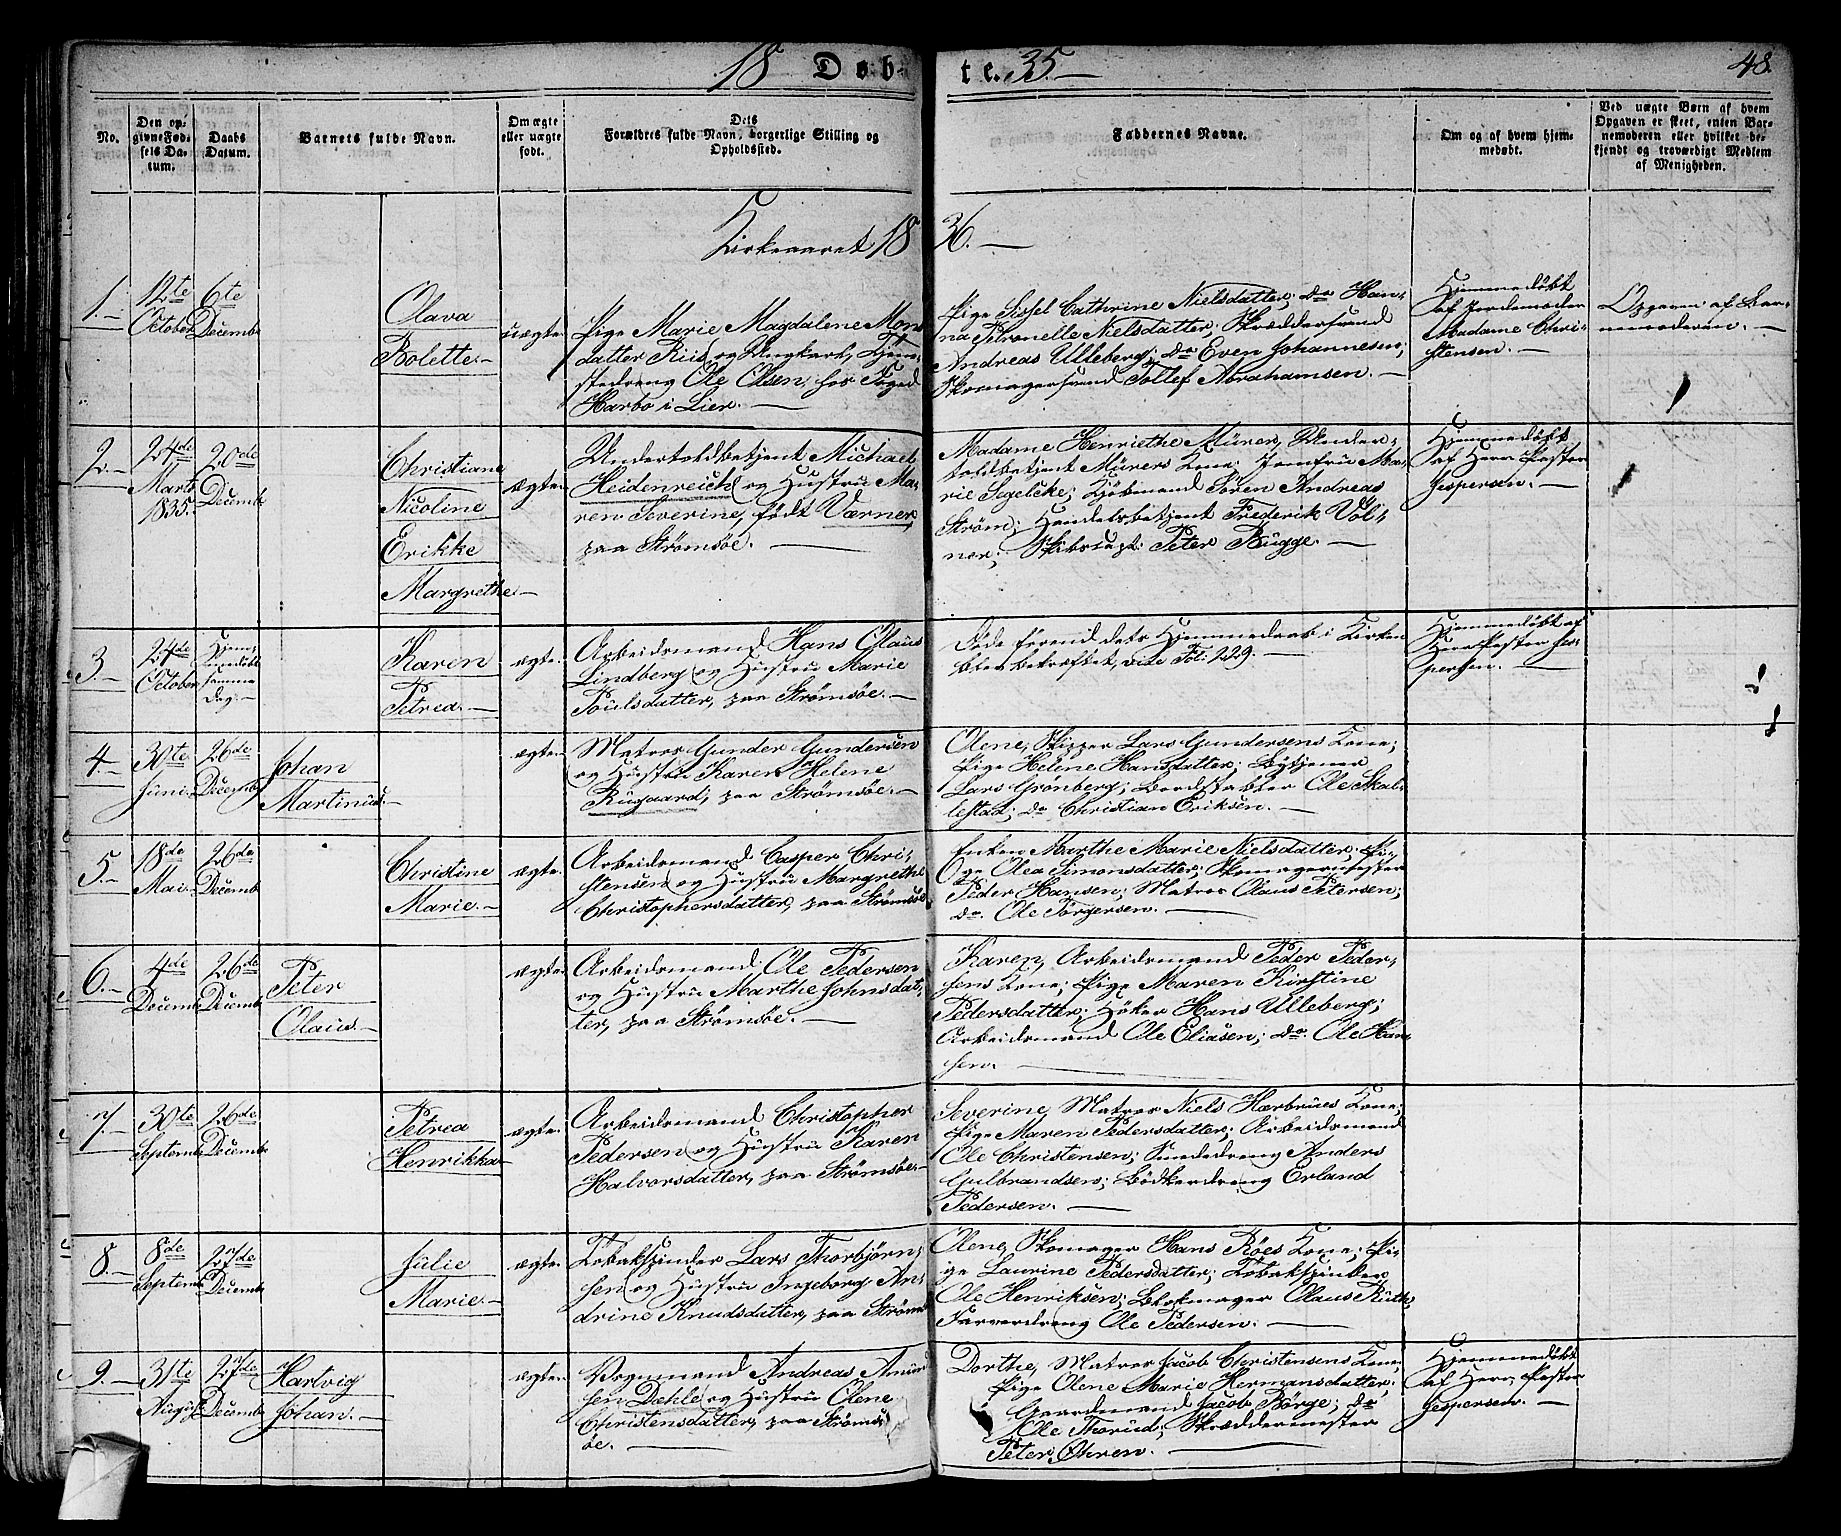 18 Døb-
te. 35
48.
No.
Den op-
givne Fød-
sels Da-
tum.
Daabs
Datum.
Barnets fulde Navn.
Om ægte
eller uægte
født.
Dets
Forældres fulde Navn, borgerlige Stilling og
Opholdssted.
Faddernes Navne.
Om og af hvem hjem-
medøbt.
Ved uægte Børn af hvem
Opgaven er skeet, enten Bar-
nemoderen eller hvilket be-
kjendt og troværdigt Medlem
af Menigheden.
Kirkeaaret 18
36.
1.
12te
October
6te
Decemb
Olava
Bolette.
uægte
Pige Marie Magdalene Mons
datter Riis og Ungkarl, Tjene
stedreng Ole Olsen, hos Foged
Harbo i Lier.
Pige Sissel Cathrine Nielsdatter; do Han-
na Petronelle Nielsdatter; Skræddersvend
Andreas Ulleberg; do Even Johannesen;
Skomagersvend Tollef Abrahamsen.
Hjemmedøbt
af Jordemoder
Madame Chri-
stensen.
Opgiven af Bar-
nemoderen.
2.
24de
Marts
1835.
20de
Decemb
Christiane
Nicoline
Erikke
Margrethe
ægte
Undertoldbetjent Michael
Heidenreich og Hustru Ma-
ren Severine, født Værner,
paa Strømsøe.
Madame Henriethe Mürer, Under-
toldbetjent Mürers Kone; Jomfru Ma-
rie Segelcke; Kjøbmand Sören Andreas
Strøm; Handelsbetjent Frederik Vol-
ner; Skibscapt: Peter Bügge.
Hjemmedøbt
af Herr Pastor
Jespersen.
3.
24de
October
Hjem-
medøbt
samme
Dag.
Karen
Petrea.
ægte
Arbeidsmand Hans Olaus
Lindberg og Hustru Marie
Poulsdatter, paa Strømsøe.
Døde førend dets Hjemmedaab i Kirken
blev bekræftet, vide Fol: 229.
Hjemmedøbt af
Herr Pastor Jes-
persen.
4.
30te
Juni
26de
Decemb
Johan
Martinus
ægte
Matros Gunder Gundersen
og Hustru Karen Helene
Rugaard, paa Strømsøe.
Olene, Skipper Lars Gundersens Kone;
Pige Helene Hansdatter; Bytjener
Lars Grønberg; Bordstabler Ole Skal-
lestad; do Christian Eriksen.
5.
18de
Mai
26de
Decemb
Christine
Marie.
ægte
Arbeidsmand Casper Chri-
stensen og Hustru Margrethe
Christophersdatter, paa Strømsøe.
Enken Marthe Marie Nielsdatter; Pi-
ge Olea Simonsdatter; Skomagermester
Peder Hansen; Matros Olaus Petersen;
do. Ole Torgersen.
6.
4de
Decemb
26de
Decemb
Peter
Olaus
ægte
Arbeidsmand Ole Pedersen
og Hustru Marthe Johnsdat-
ter, paa Strømsøe.
Karen, Arbeidsmand Peder Peder-
sens Kone; Pige Maren Kirstine
Pedersdatter; Höker Hans Ulleberg;
Arbeidsmand Ole Eliasen; do. Ole Han-
sen.
7.
30te
Septemb
26de
Decemb
Petrea
Henrikka
ægte
Arbeidsmand Christopher
Pedersen og Hustru Karen
Halvorsdatter, paa Strømsøe
Severine, Matros Niels Hærbrües Kone;
Pige Maren Pedersdatter; Arbeidsmand
Ole Christensen; Smededreng Anders
Gulbrandsen; Bødkerdreng Erland
Pedersen.
8.
8de
Septemb
27de
Decemb
Julie
Marie
ægte
Tobakspinder Lars Thorbjørn-
sen og Hustru Ingeborg An-
drine Knudsdatter, paa Strømsøe
Olene, Skomager Hans Röes Kone; Pi-
ge Laurine Pedersdatter; Tobakspinder
Ole Henriksen; Blokmager Olaus Ruth;
Farverdreng Ole Pedersen.
9.
31te
August
27de
Decemb
Hartvig
Johan.
ægte
Vognmand Andreas Amund
sen Dahle og Hustru Olene
Christensdatter, paa Strøms
øe.
Dorthe, Matros Jacob Christensens Kone
Pige Olene Marie Hermansdatter;
Gaardmand Jacob Börge; do
Ole Thorud; Skræddermester
Peter Ohren.
Hjemmedøbt
af Herr Pastor
Jespersen.